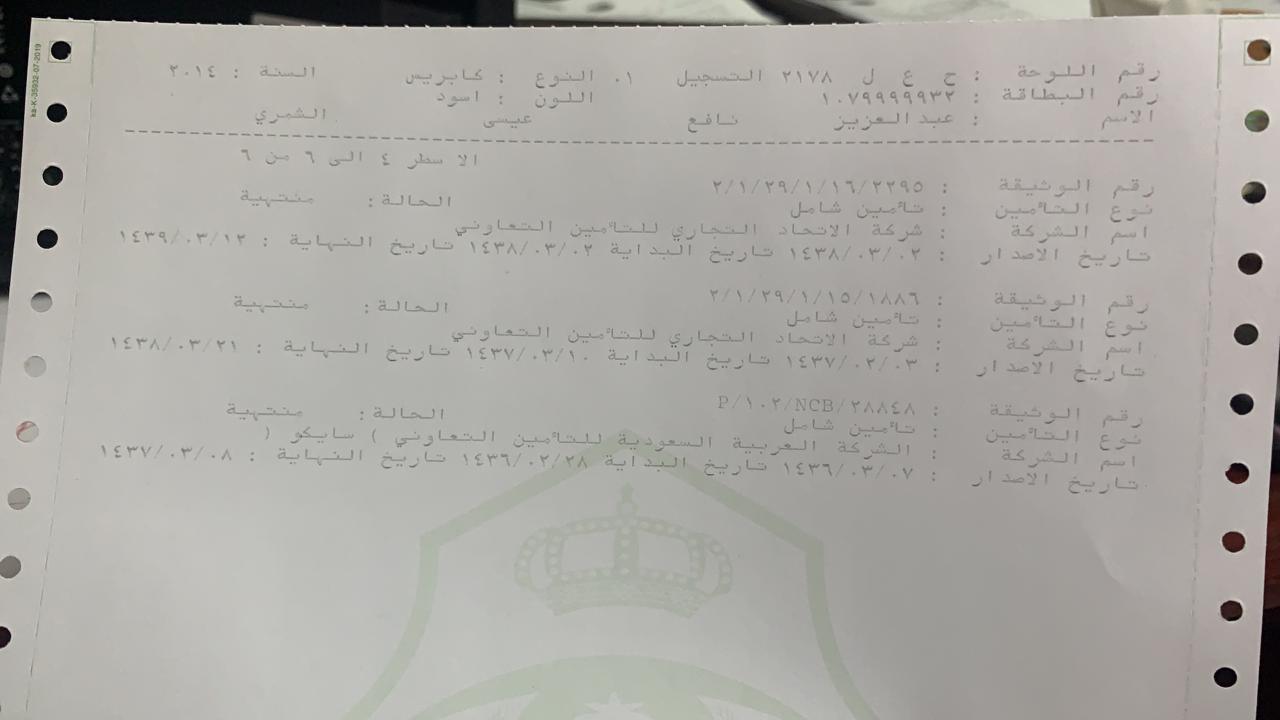 رقم اللوحة : ح ع ل ٢١٧٨ التسجيل ٠١ النوع : كابريس السنة : ٢٠١٤
رقم البطاقة : ١٠٧٩٩٩٩٩٣٢ اللون : اسود
الاسم : عبد العزيز نافع عيسى الشمري
الاسطر ٤ الى ٦ من ٦
رقم الوثيقة : ٢/١/٢٩/١/١٦/٢٢٩٥
نوع التأمين : تأمين شامل الحالة : منتهية
اسم الشركة : شركة الاتحاد التجاري للتأمين التعاوني
تاريخ الاصدار : ١٤٣٨/٠٣/٠٢ تاريخ البداية ١٤٣٨/٠٣/٠٢ تاريخ النهاية : ١٤٣٩/٠٣/١٢
رقم الوثيقة : ٢/١/٢٩/١/١٥/١٨٨٦
نوع التأمين : تأمين شامل الحالة : منتهية
اسم الشركة : شركة الاتحاد التجاري للتأمين التعاوني
تاريخ الاصدار : ١٤٣٧/٠٢/٠٣ تاريخ البداية ١٤٣٧/٠٣/١٠ تاريخ النهاية : ١٤٣٨/٠٣/٢١
رقم الوثيقة : P/١٠٢/NCB/٢٨٨٤٨
نوع التأمين : تأمين شامل الحالة : منتهية
اسم الشركة : الشركة العربية السعودية للتأمين التعاوني ) سايكو (
تاريخ الاصدار : ١٤٣٦/٠٣/٠٧ تاريخ البداية ١٤٣٦/٠٢/٢٨ تاريخ النهاية : ١٤٣٧/٠٣/٠٨